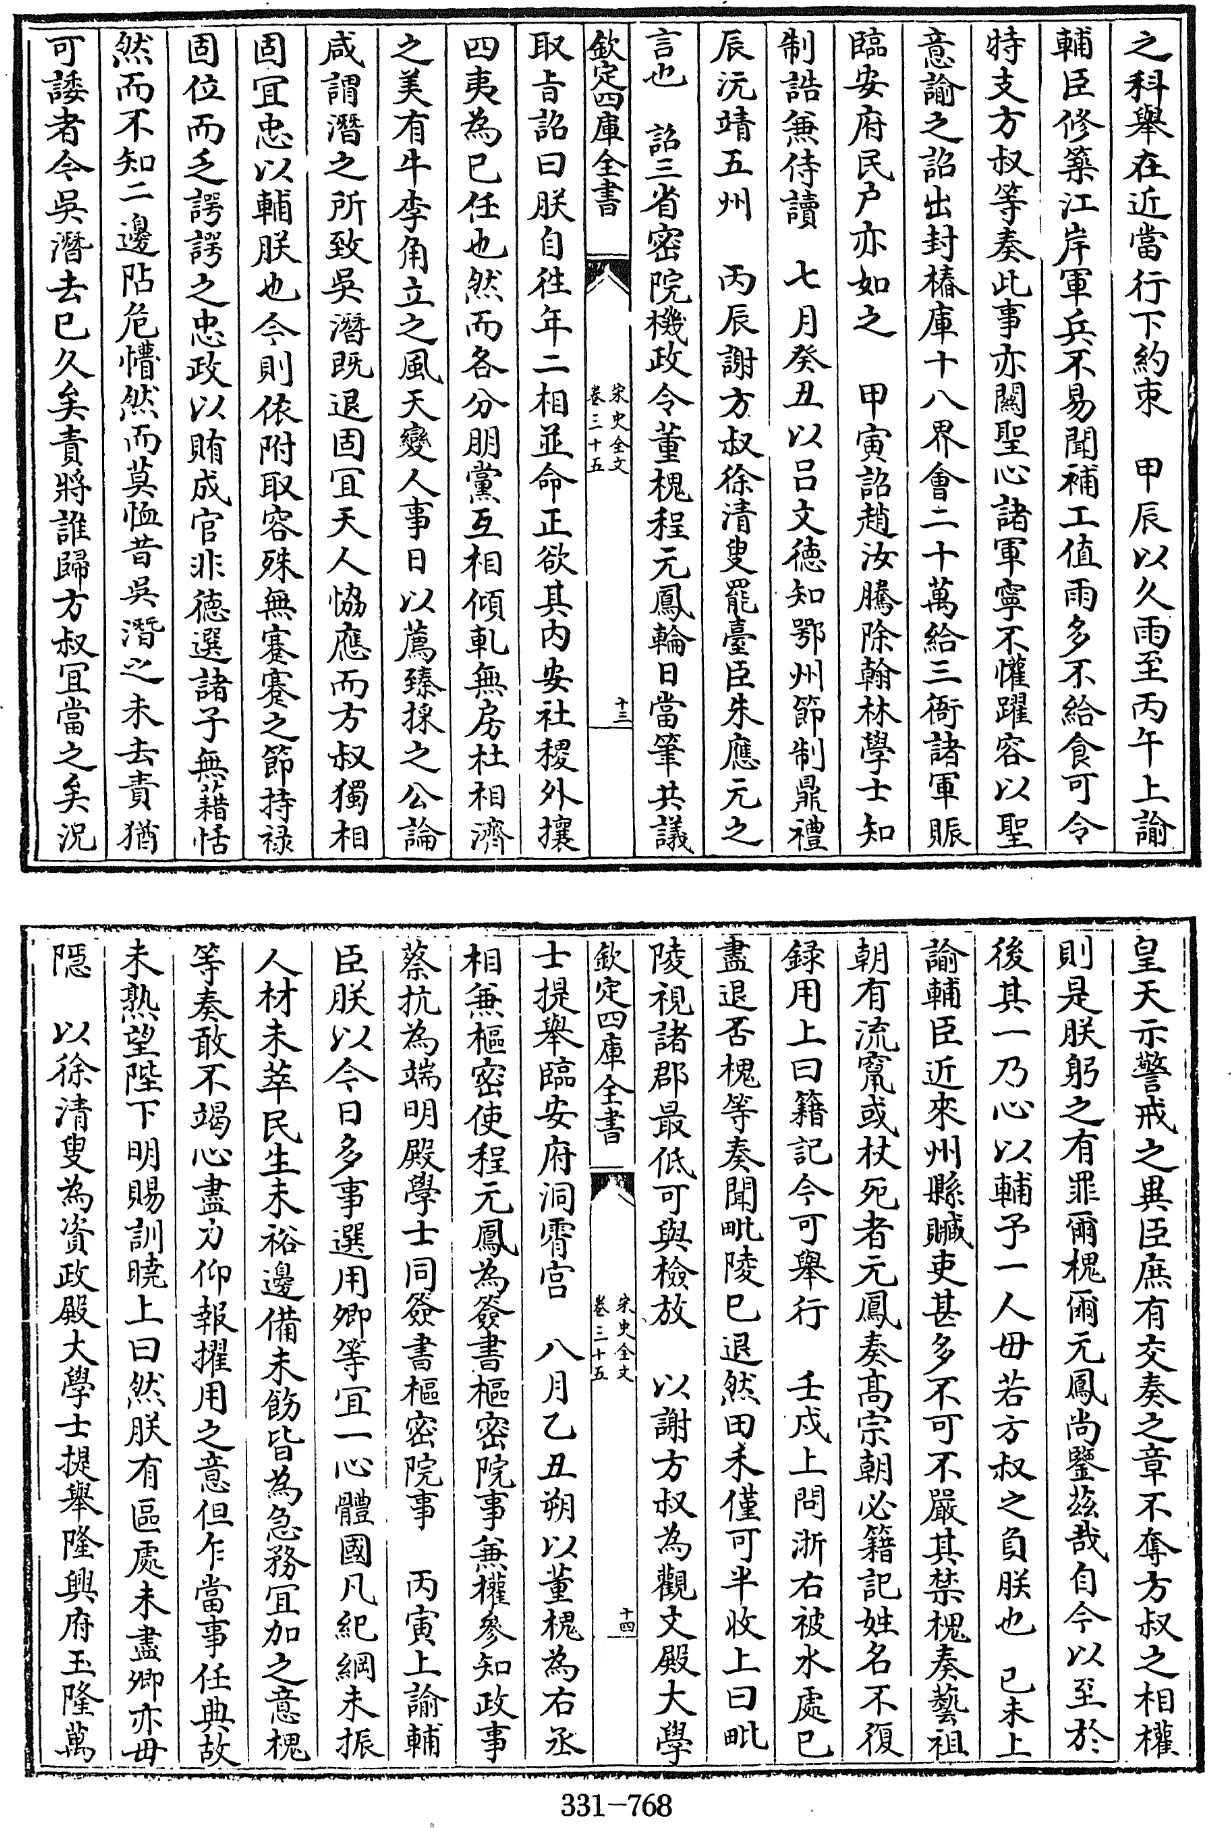 之科舉在近當行下約束　甲辰以久雨至丙午上諭
輔臣修築江岸軍兵不易聞補工值雨多不給食可令
特支方叔等奏此事亦關聖心諸軍寧不懽躍容以聖
意諭之詔出封樁庫十八界會二十萬給三衙諸軍賑
臨安府民户亦如之　甲寅詔趙汝騰除翰林學士知
制誥兼侍讀　七月癸丑以吕文德知鄂州節制鼎禮
辰沅靖五州　丙辰謝方叔徐清叟罷臺臣朱應元之
言也　詔三省密院機政令董槐程元鳳輪日當筆共議
欽定四庫全書
宋史全文
卷三十五
十三
取㫖詔曰朕自徃年二相並命正欲其内安社稷外攘
四夷為已任也然而各分朋黨互相傾軋無房杜相濟
之美有牛李角立之風天變人事日以薦臻採之公論
咸謂潛之所致吳潛既退固宜天人恊應而方叔獨相
固宜忠以輔朕也今則依附取容殊無蹇蹇之節持禄
固位而乏諤諤之忠政以賄成官非德選諸子無藉恬
然而不知二邊阽危懵然而莫恤昔吳潛之未去責猶
可諉者今吳潛去已久矣責將誰歸方叔宜當之矣況
皇天示警戒之異臣庶有交奏之章不奪方叔之相權
則是朕躬之有罪爾槐爾元鳳尚鑒兹哉自今以至於
後其一乃心以輔予一人毋若方叔之負朕也　己未上
諭輔臣近來州縣贓吏甚多不可不嚴其禁槐奏藝祖
朝有流竄或杖死者元鳳奏髙宗朝必籍記姓名不復
録用上曰籍記今可舉行　壬戌上問浙右被水處已
盡退否槐等奏聞毗陵已退然田禾僅可半收上曰毗
陵視諸郡最低可與檢放　以謝方叔為觀文殿大學
欽定四庫全書
宋史全文
卷三十五
十四
士提舉臨安府洞霄宫　八月乙丑朔以董槐為右丞
相兼樞密使程元鳳為簽書樞密院事兼權參知政事
蔡抗為端明殿學士同簽書樞密院事　丙寅上諭輔
臣朕以今日多事選用卿等宜一心體國凡紀綱未振
人材未萃民生未裕邊備未飭皆為急務宜加之意槐
等奏敢不竭心盡力仰報擢用之意但乍當事任典故
未熟望陛下明賜訓曉上曰然朕有區處未盡卿亦毋
隠　以徐清叟為資政殿大學士提舉隆興府玉隆萬
331-768